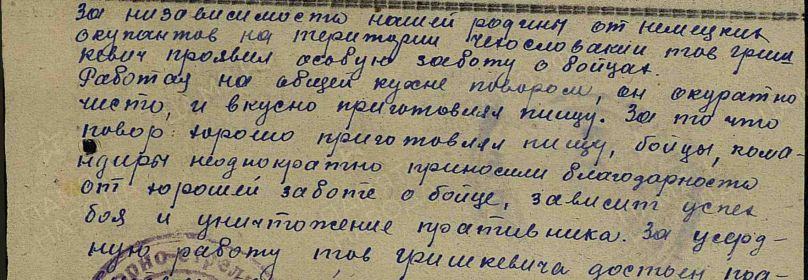 За низависимость нашей родины от немецких
окупантов на територии чехословакии тов гриш
кевич проявил особую заботу о бойцах.
Работая на общей кухне поваром, он окуратно
чисто, и вкусно приготовлял пищу. За то что
повор хорошо приготовлял пищу, бойцы, кома-
ндиры неоднократно приносили благодарность
от хорошей заботе о бойце, зависит успех
боя и уничтожение пративника. За усерд-
ную работу тов гришкевича достоен пра-